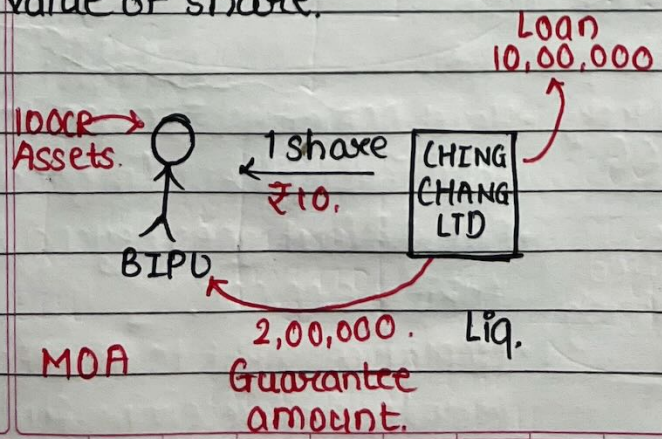 value of share.
Loan
10,00,000
100CR
Assets.
1 share
₹10.
CHING
CHANG
LTD
BIPU
2,00,000.
Liq.
MOA
Guarantee
amount.